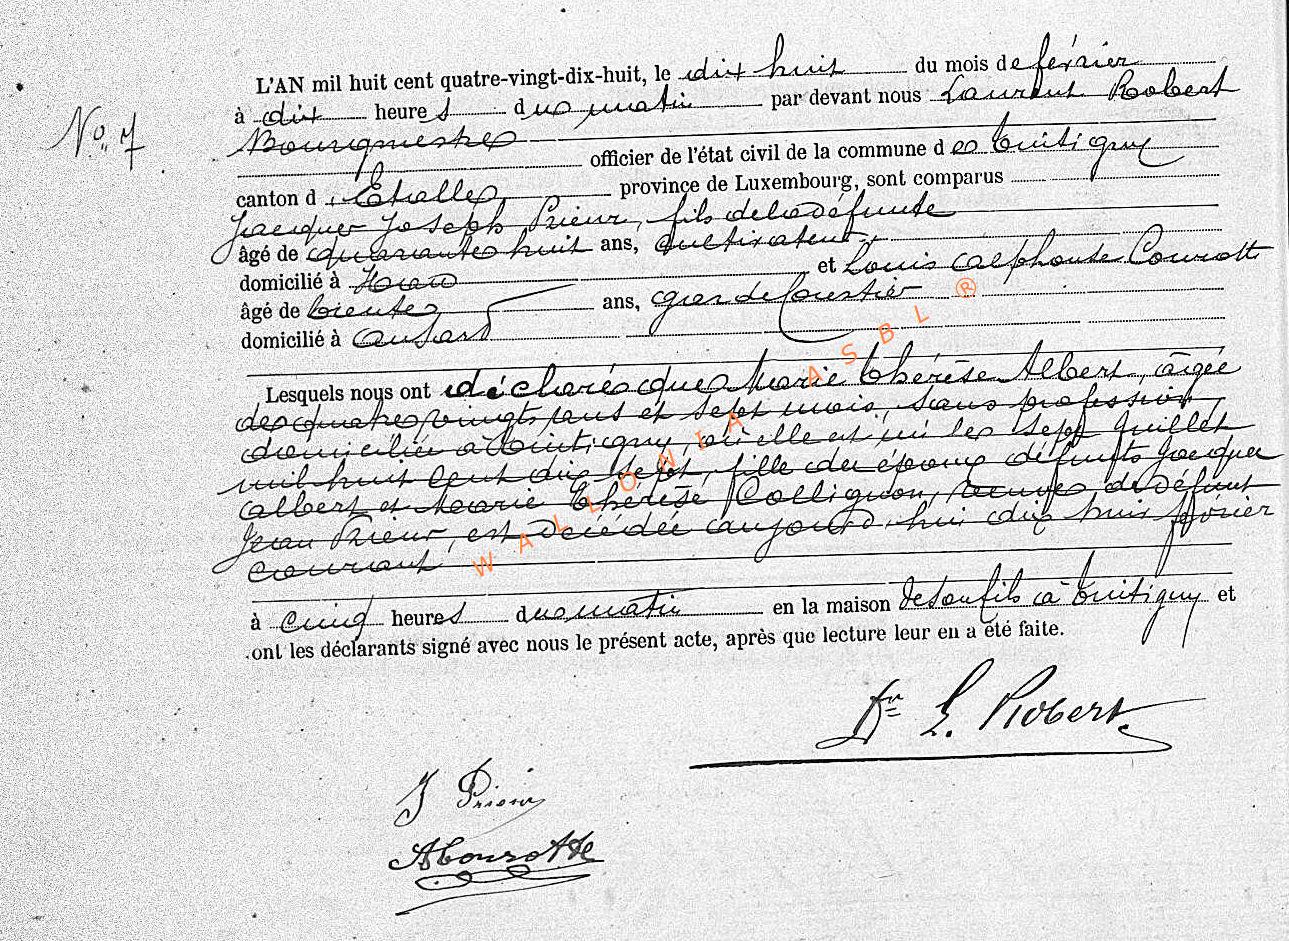 L'AN mil huit cent quatre-vingt-dix-huit, le dix huit du mois de février
No. 7
à dix heures du matin par devant nous Laurent Robert
Bourgmestre
officier de l'état civil de la commune de Tintigny
canton d'Etalle province de Luxembourg, sont comparus
Jacques Joseph Prieur, fils de la défunte
âgé de quarante huit ans, cultivateur
domicilié à et Louis Alphonse Courotte
âgé de trente ans, garde forestier
domicilié à Ansart
Lesquels nous ont déclaré que Marie Thérèse Albert, âgée
de quatre vingts ans et sept mois, sans profession,
domiciliée à Tintigny, où elle est née le sept Juillet
mil huit cent dix sept, fille des époux défunts Jacques
Albert et Marie Thérèse Collignon, veuve de défunt
Jean Prieur, est décédée aujourd'hui dix huit février
courant
à cinq heures du matin en la maison de son fils à Tintigny et
ont les déclarants signé avec nous le présent acte, après que lecture leur en a été faite.
Dr L. Robert
J Prieur
A Courotte
WALLONIA ASBL ®